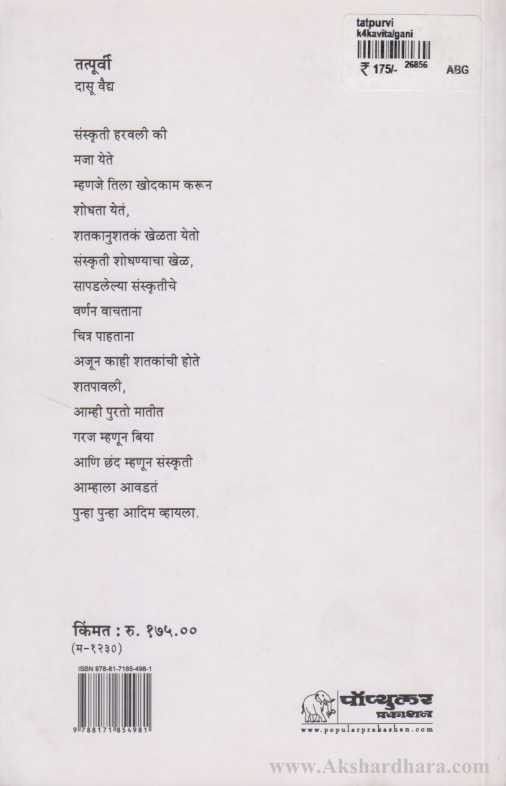 tatpurvi
k4kavita/gani
₹ 175/- 26856 ABG
तत्पूर्वी
दासू वैद्य
संस्कृती हरवली की
मजा येते
म्हणजे तिला खोदकाम करून
शोधता येतं,
शतकानुशतकं खेळता येतो
संस्कृती शोधण्याचा खेळ,
सापडलेल्या संस्कृतीचे
वर्णन वाचताना
चित्र पाहताना
अजून काही शतकांची होते
शतपावली,
आम्ही पुरतो मातीत
गरज म्हणून बिया
आणि छंद म्हणून संस्कृती
आम्हाला आवडतं
पुन्हा पुन्हा आदिम व्हायला.
किंमत : रु. १७५.००
(म-१२३०)
ISBN 978-81-7185-498-1
9 788171 854981
पॉप्युलर
प्रकाशन
www.popularprakashan.com
www.Akshardhara.com